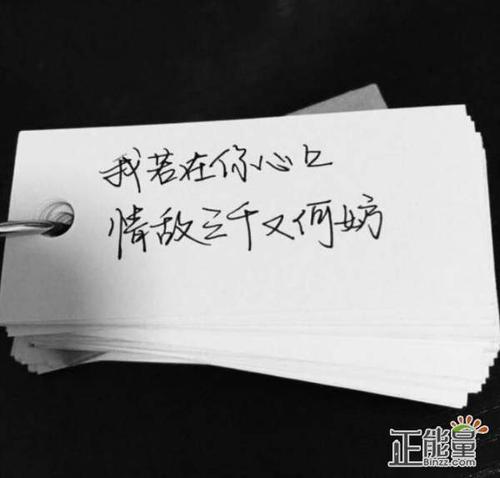 我若在你心上
情敌三千又何妨
正能量
Binzz.com